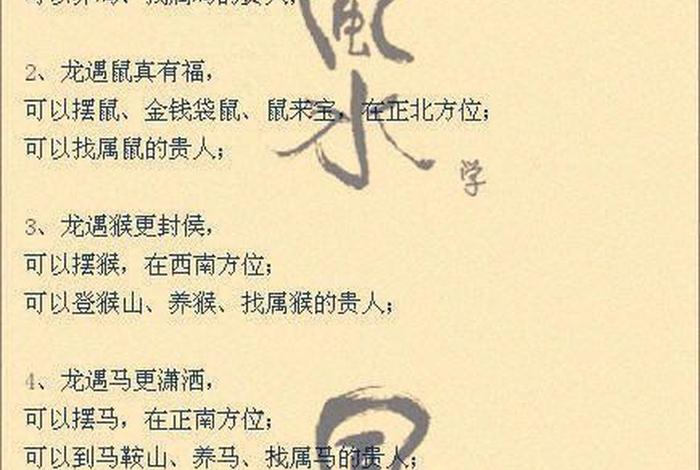 2、龙遇鼠真有福，
可以摆鼠、金钱袋鼠、鼠来宝，在正北方位；
可以找属鼠的贵人；
3、龙遇猴更封侯，
可以摆猴，在西南方位；
可以登猴山、养猴、找属猴的贵人；
4、龙遇马更潇洒，
可以摆马，在正南方位；
可以到马鞍山、养马、找属马的贵人；
風水
学